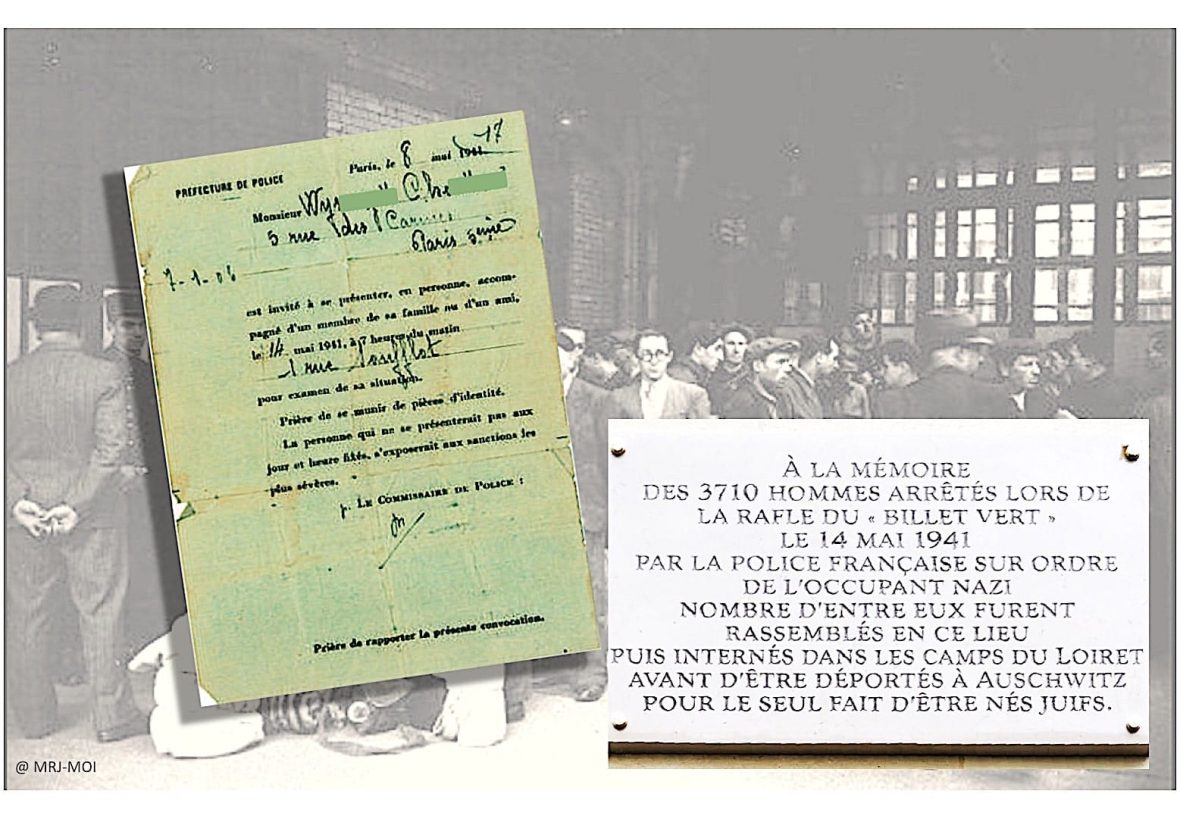 PREFECTURE DE POLICE
Paris, le 8 mai 1941 17
Monsieur Wys Che
5 rue des Carmes
Paris 5eme
7-1-06
est invité à se présenter, en personne, accom-
pagné d'un membre de sa famille ou d'un ami,
le 14 mai 1941, à 7 heures du matin
1 rue Soufflot
pour examen de sa situation.
Prière de se munir de pièces d'identité.
La personne qui ne se présenterait pas aux
jour et heure fixés, s'exposerait aux sanctions les
plus sévères.
p. LE COMMISSAIRE DE POLICE :
Prière de rapporter la présente convocation.
À LA MÉMOIRE
DES 3710 HOMMES ARRÊTÉS LORS DE
LA RAFLE DU « BILLET VERT »
LE 14 MAI 1941
PAR LA POLICE FRANÇAISE SUR ORDRE
DE L'OCCUPANT NAZI
NOMBRE D'ENTRE EUX FURENT
RASSEMBLÉS EN CE LIEU
PUIS INTERNÉS DANS LES CAMPS DU LOIRET
AVANT D'ÊTRE DÉPORTÉS À AUSCHWITZ
POUR LE SEUL FAIT D'ÊTRE NÉS JUIFS.
@ MRJ-MOI